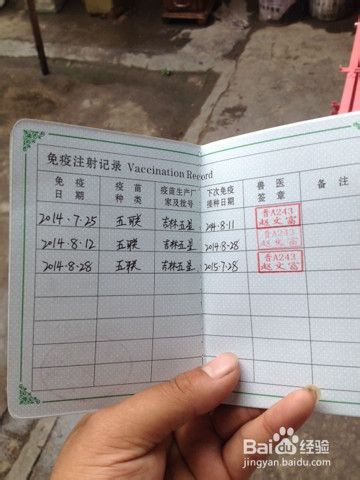 免疫注射记录 Vaccination Record
免疫日期 疫苗种类 疫苗生产厂家及批号 下次免疫接种日期 兽医签章 备注
2014.7.25 五联 吉林五星 2014.8-11 晋A243 赵文富
2014.8.12 五联 吉林五星 2014.8-28 晋A243 赵文富
2014-8-28 五联 吉林五星 2015.7-28 晋A243 赵文富
Bai百度经验
jingyan.baidu.com